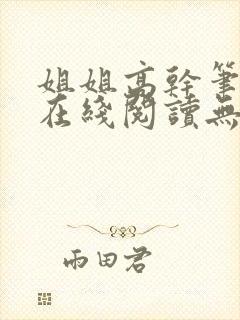 姐姐高幹筆
在綫閱讀無
雨田君